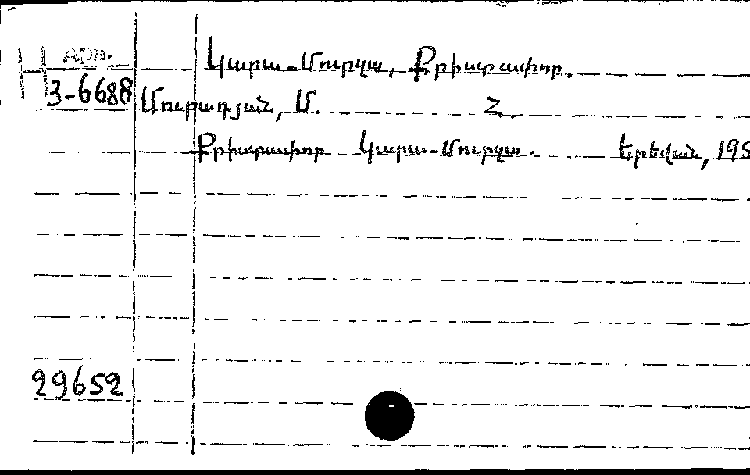 АРМ.
Կարա-Մուրզա, Քրիստափոր.
3-6688 Մուրադյան, Մ. Հ.
Քրիստափոր Կարա-Մուրզա. Երեվան, 195
29652